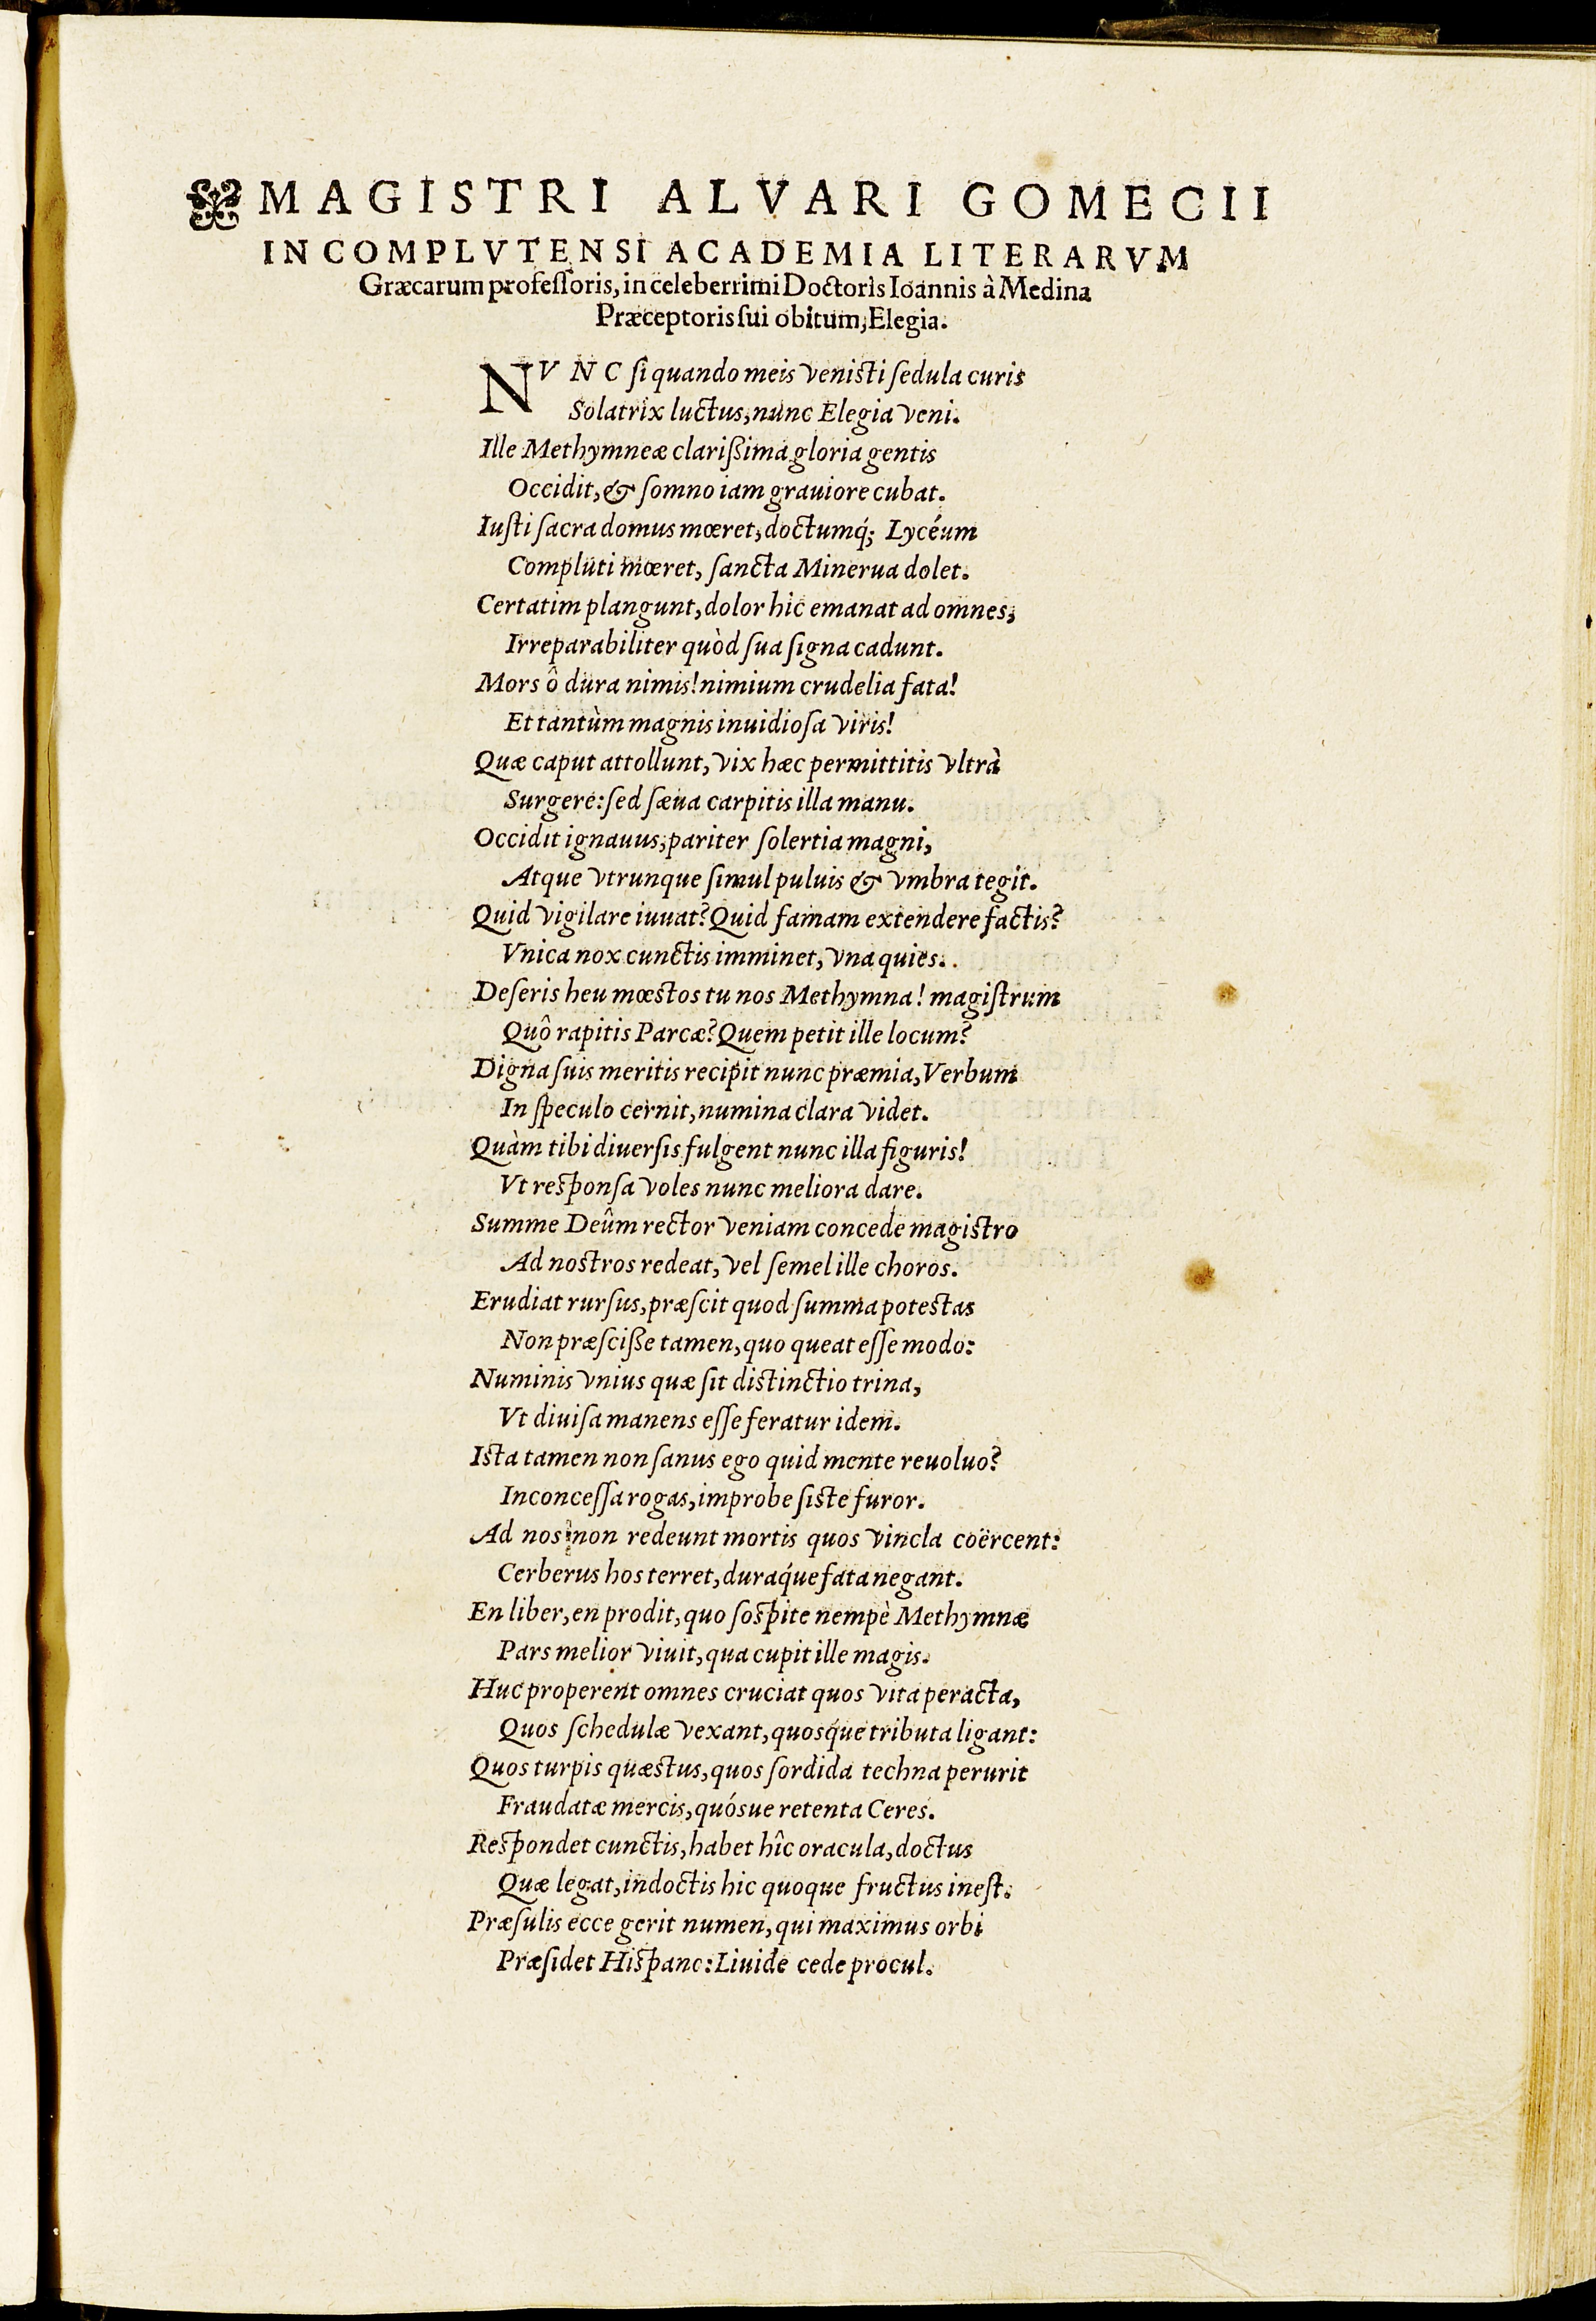 MAGISTRI ALVARI GOMECII
IN COMPLVTENSI ACADEMIA LITERARVM
Græcarum profeſſoris, in celeberrimi Doctoris Ioannis à Medina
Præceptoris ſui obitum, Elegia.
NVNC ſi quando meis veniſti ſedula curis
Solatrix luctus, nunc Elegia veni.
Ille Methymneæ clarißima gloria gentis
Occidit, & ſomno iam grauiore cubat.
Iuſti ſacra domus mœret, doctumq́; Lycéum
Compluti mœret, ſancta Minerua dolet.
Certatim plangunt, dolor hic emanat ad omnes,
Irreparabiliter quòd ſua ſigna cadunt.
Mors ô dura nimis! nimium crudelia fata!
Et tantùm magnis inuidioſa viris!
Quæ caput attollunt, vix hæc permittitis vltrà
Surgere: ſed ſæua carpitis illa manu.
Occidit ignauus, pariter ſolertia magni,
Atque vtrunque ſimul puluis & vmbra tegit.
Quid vigilare iuuat? Quid famam extendere factis?
Vnica nox cunctis imminet, vna quies.
Deſeris heu mœstos tu nos Methymna! magiſtrum
Quô rapitis Parcæ? Quem petit ille locum?
Digna ſuis meritis recipit nunc præmia, Verbum
In ſpeculo cernit, numina clara videt.
Quàm tibi diuerſis fulgent nunc illa figuris!
Vt responſa voles nunc meliora dare.
Summe Deûm rector veniam concede magistro
Ad nostros redeat, vel ſemel ille choros.
Erudiat rurſus, præſcit quod ſumma potestas
Non præſciße tamen, quo queat eſſe modo:
Numinis vnius quæ ſit distinctio trina,
Vt diuiſa manens eſſe feratur idem.
Ista tamen non ſanus ego quid mente reuoluo?
Inconceſſa rogas, improbe ſiste furor.
Ad nos non redeunt mortis quos vincla coërcent:
Cerberus hos terret, duraq́ue fata negant.
En liber, en prodit, quo ſospite nempè Methymnæ
Pars melior viuit, qua cupit ille magis.
Huc properent omnes cruciat quos vita peracta,
Quos ſchedulæ vexant, quosq́ue tributa ligant:
Quos turpis quæstus, quos ſordida techna perurit
Fraudatæ mercis, quósue retenta Ceres.
Respondet cunctis, habet hîc oracula, doctus
Quæ legat, indoctis hic quoque fructus ineſt.
Præſulis ecce gerit numen, qui maximus orbi
Præſidet Hispano: Liuide cede procul.